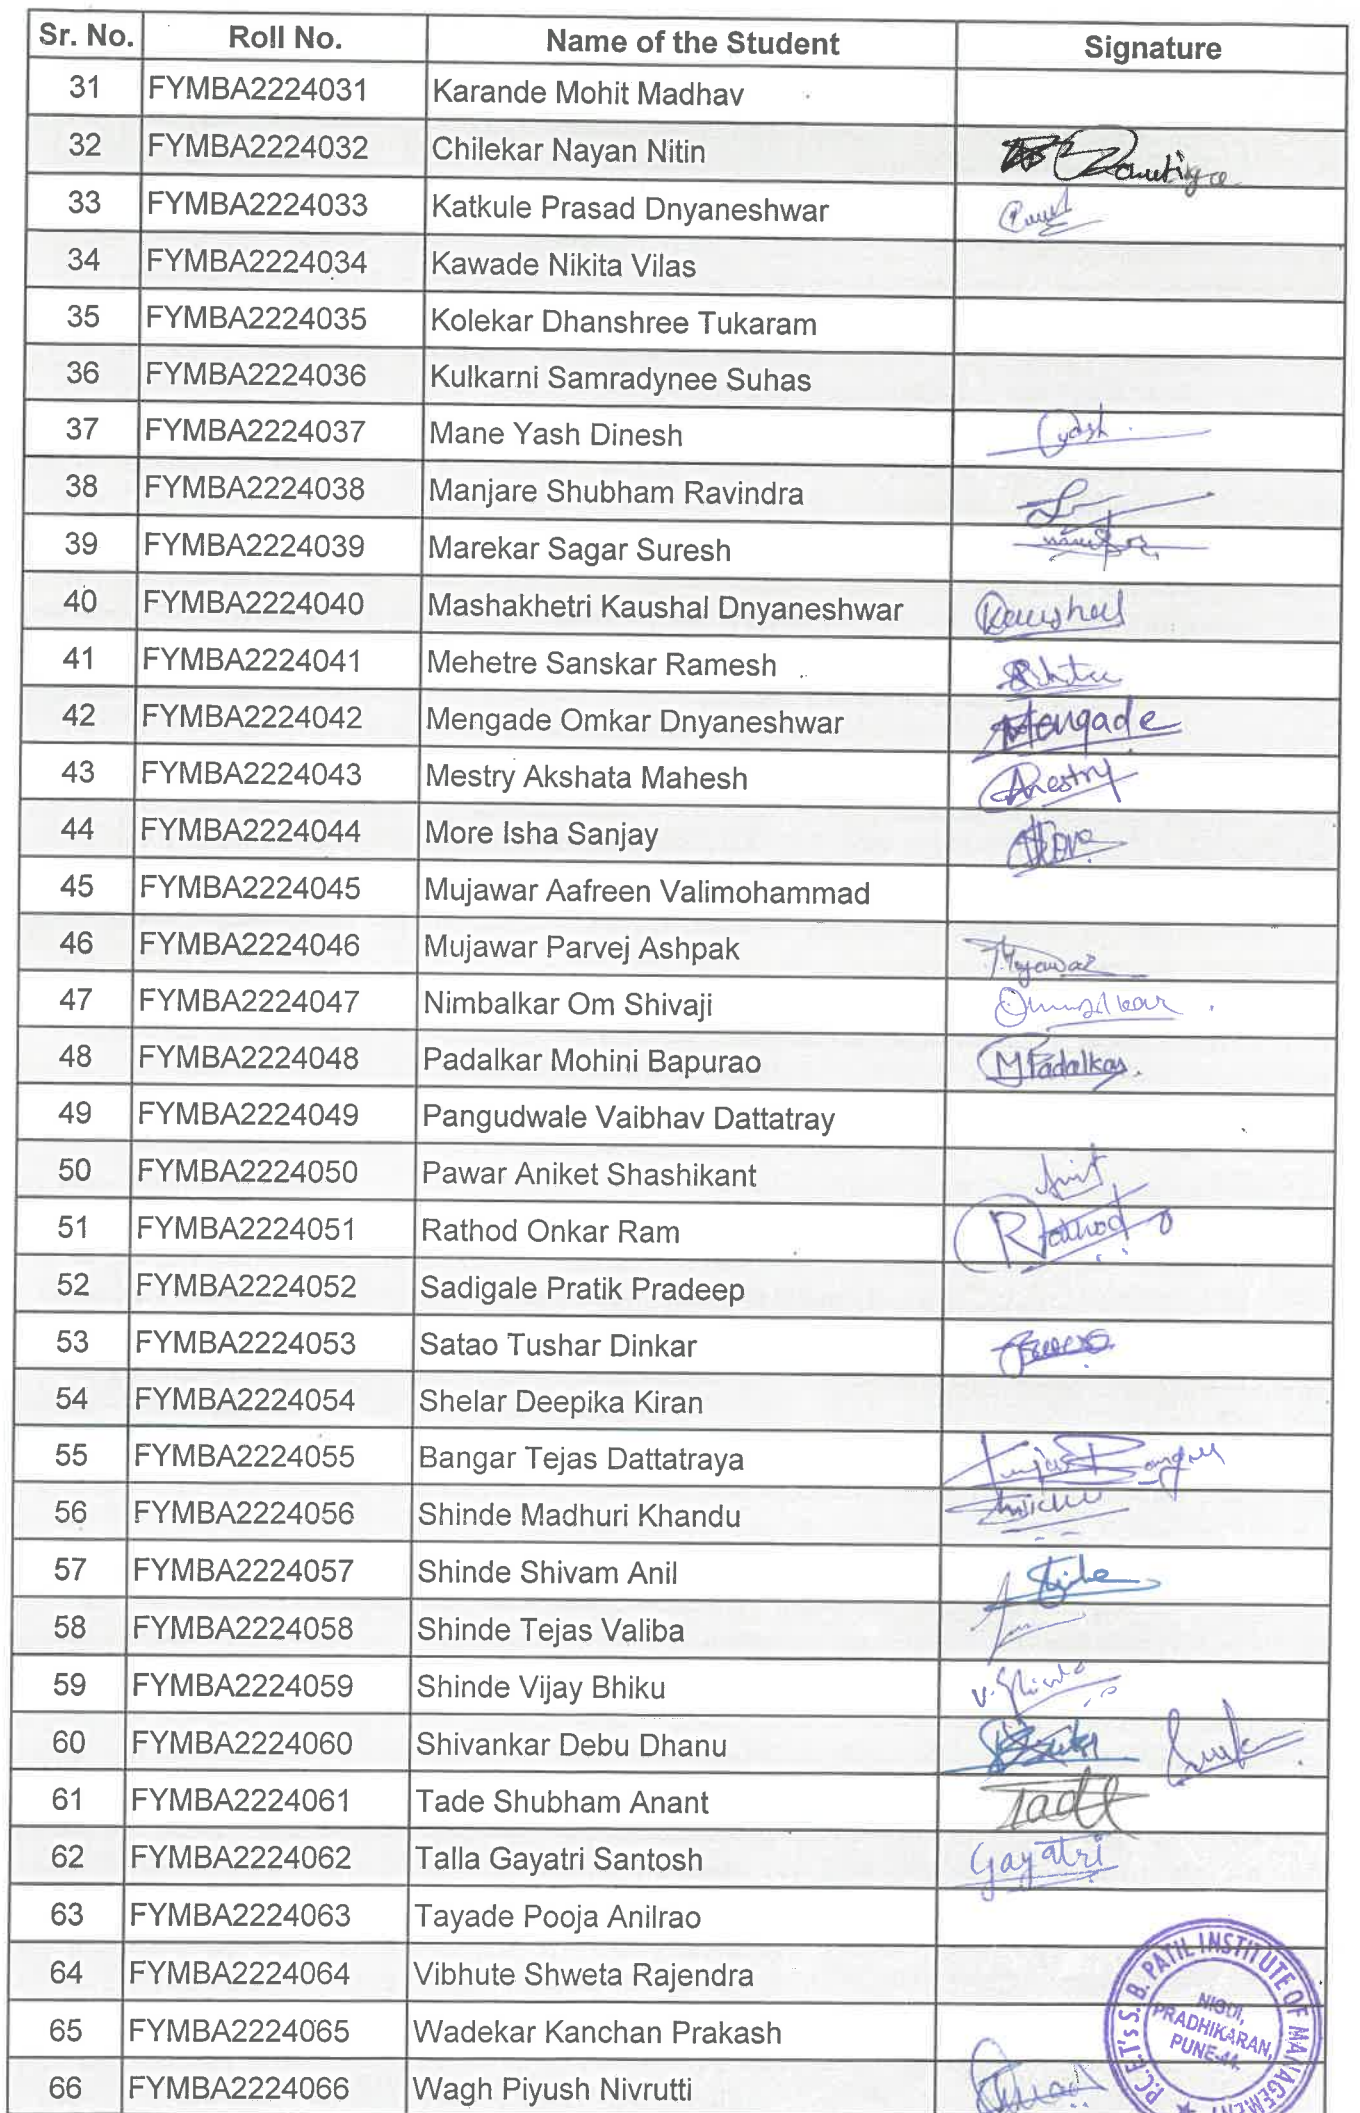 Sr. No. Roll No. Name of the Student Signature
31 FYMBA2224031 Karande Mohit Madhav
32 FYMBA2224032 Chilekar Nayan Nitin
33 FYMBA2224033 Katkule Prasad Dnyaneshwar
34 FYMBA2224034 Kawade Nikita Vilas
35 FYMBA2224035 Kolekar Dhanshree Tukaram
36 FYMBA2224036 Kulkarni Samradynee Suhas
37 FYMBA2224037 Mane Yash Dinesh
38 FYMBA2224038 Manjare Shubham Ravindra
39 FYMBA2224039 Marekar Sagar Suresh
40 FYMBA2224040 Mashakhetri Kaushal Dnyaneshwar Kaushal
41 FYMBA2224041 Mehetre Sanskar Ramesh
42 FYMBA2224042 Mengade Omkar Dnyaneshwar Mengade
43 FYMBA2224043 Mestry Akshata Mahesh AMestry
44 FYMBA2224044 More Isha Sanjay
45 FYMBA2224045 Mujawar Aafreen Valimohammad
46 FYMBA2224046 Mujawar Parvej Ashpak
47 FYMBA2224047 Nimbalkar Om Shivaji
48 FYMBA2224048 Padalkar Mohini Bapurao MPadalkar.
49 FYMBA2224049 Pangudwale Vaibhav Dattatray
50 FYMBA2224050 Pawar Aniket Shashikant
51 FYMBA2224051 Rathod Onkar Ram Rathod
52 FYMBA2224052 Sadigale Pratik Pradeep
53 FYMBA2224053 Satao Tushar Dinkar
54 FYMBA2224054 Shelar Deepika Kiran
55 FYMBA2224055 Bangar Tejas Dattatraya
56 FYMBA2224056 Shinde Madhuri Khandu
57 FYMBA2224057 Shinde Shivam Anil
58 FYMBA2224058 Shinde Tejas Valiba
59 FYMBA2224059 Shinde Vijay Bhiku V. Shinde
60 FYMBA2224060 Shivankar Debu Dhanu
61 FYMBA2224061 Tade Shubham Anant Tade
62 FYMBA2224062 Talla Gayatri Santosh Gayatri
63 FYMBA2224063 Tayade Pooja Anilrao
64 FYMBA2224064 Vibhute Shweta Rajendra
65 FYMBA2224065 Wadekar Kanchan Prakash
66 FYMBA2224066 Wagh Piyush Nivrutti
P.C.E.T's S. B. PATIL INSTITUTE OF MANAGEMENT
NIGDI,
PRADHIKARAN,
PUNE-44.